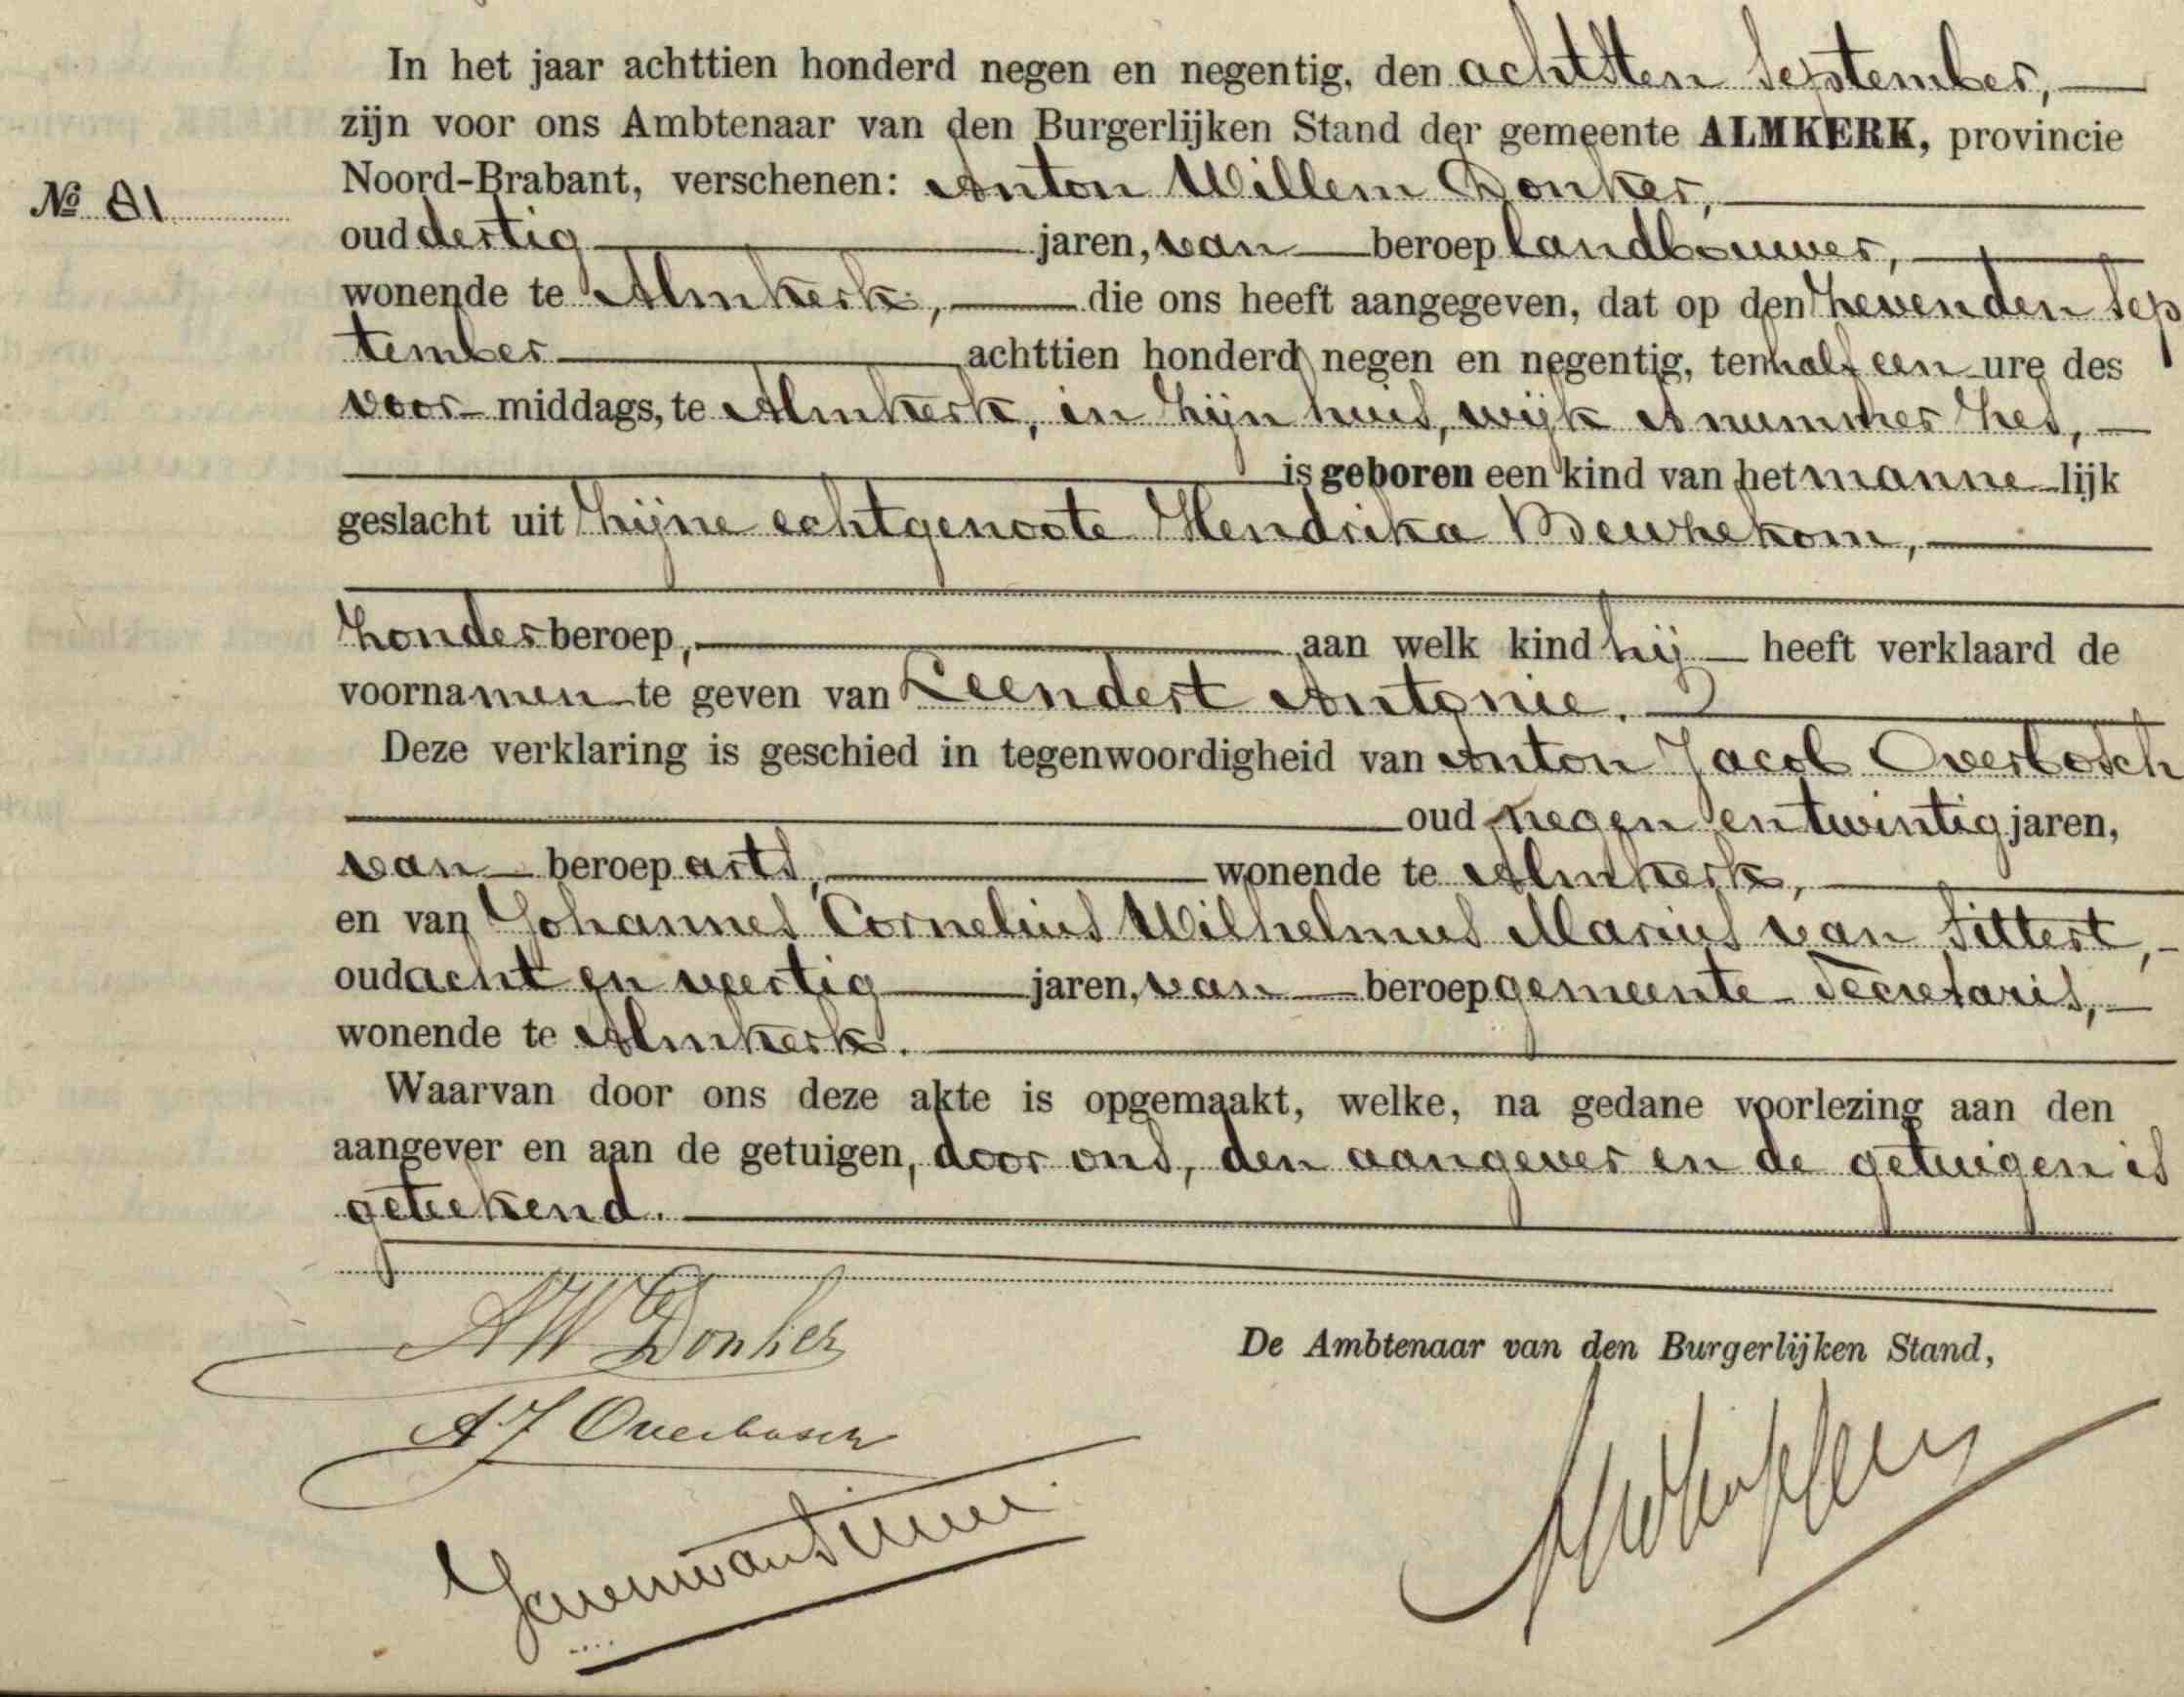 In het jaar achttien honderd negen en negentig, den achtsten September,
zijn voor ons Ambtenaar van den Burgerlijken Stand der gemeente ALMKERK, provincie
Noord-Brabant, verschenen: Anton Willem Donker,
№ 81
oud dertig jaren, van beroep landbouwer,
wonende te Almkerk, die ons heeft aangegeven, dat op den zevenden Sep
tember achttien honderd negen en negentig, ten half een ure des
voor middags, te Almkerk, in zijn huis, wijk A nummer zes,
is geboren een kind van het mannelijk
geslacht uit zijne echtgenoote Hendrika Beuzekom,
zonder beroep, aan welk kind hij heeft verklaard de
voornamen te geven van Leendert Antonie.
Deze verklaring is geschied in tegenwoordigheid van Anton Jacob Overbosch
oud negen en twintig jaren,
van beroep arts, wonende te Almkerk,
en van Johannes Cornelius Wilhelmus Marius van Sittert,
oud acht en veertig jaren, van beroep gemeente-Secretaris,
wonende te Almkerk.
Waarvan door ons deze akte is opgemaakt, welke, na gedane voorlezing aan den
aangever en aan de getuigen, door ons, den aangever en de getuigen is
geteekend.
AW Donker
De Ambtenaar van den Burgerlijken Stand,
AJ Overbosch